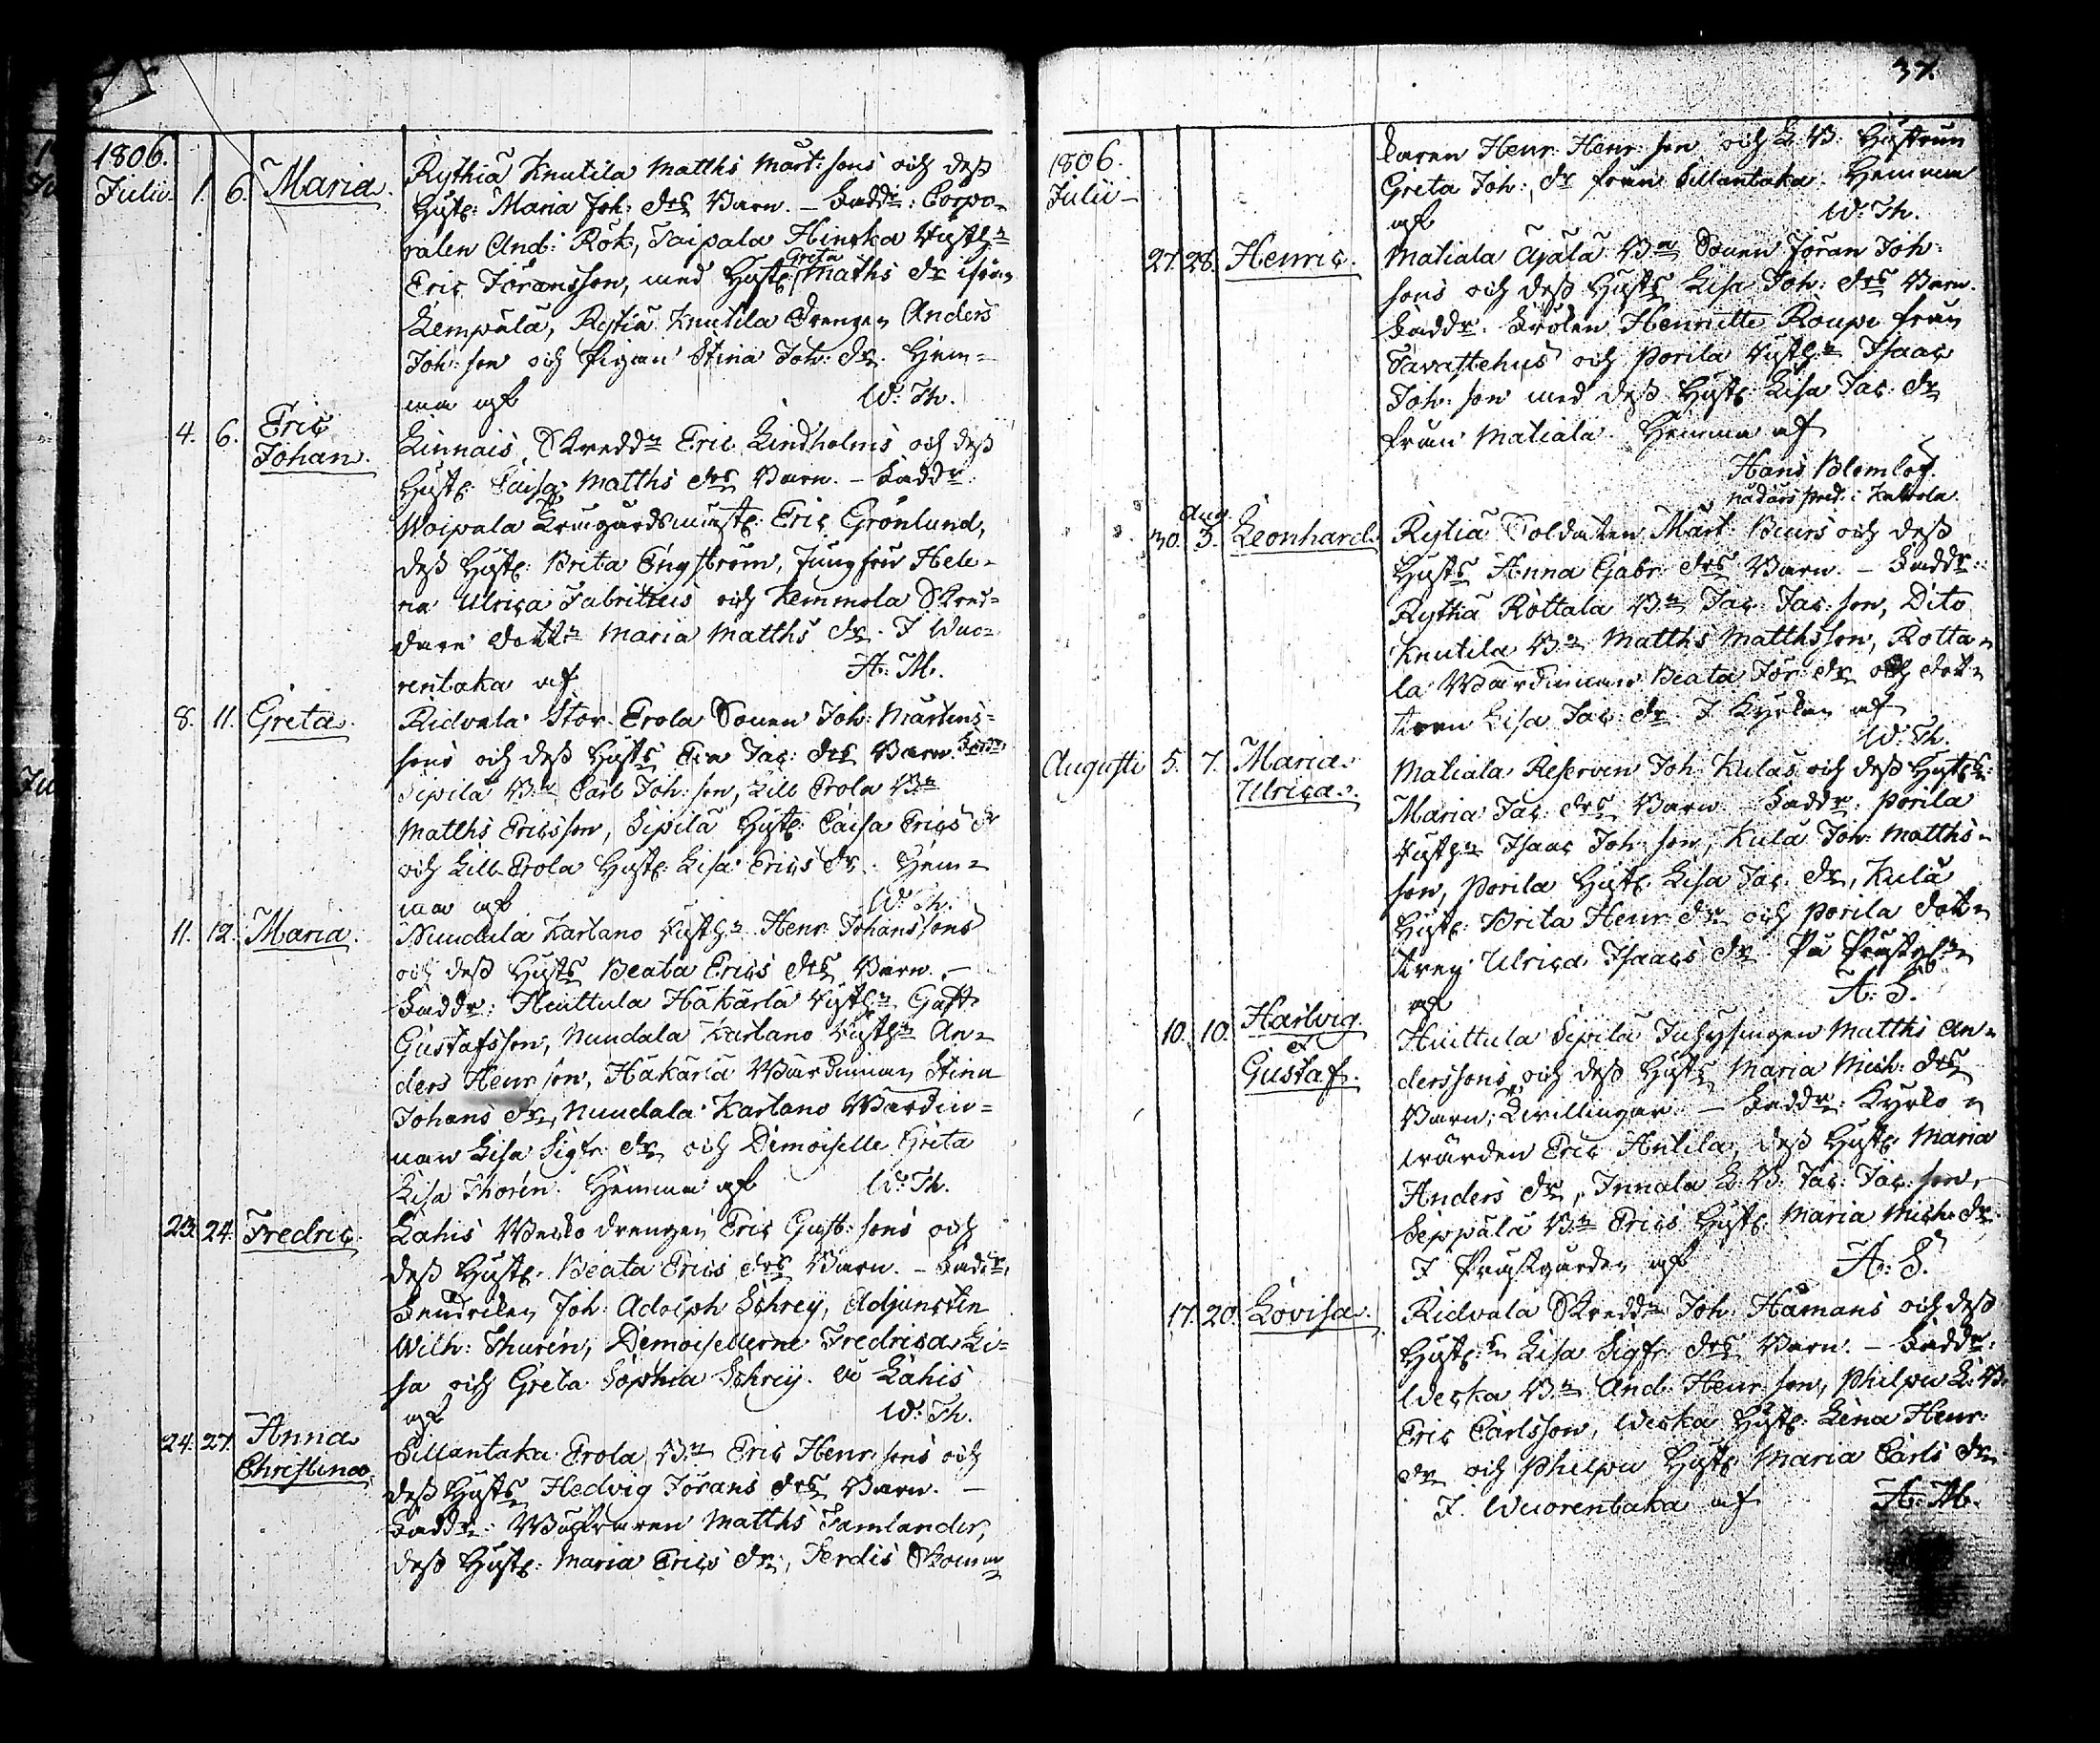 1806.
Julii. 1. 6. Maria. Rythiä Knutila Matths Mårt:sons och dess
Hust: Maria Joh: drs Barn. – Faddr: Corpo-
ralen And: Rök, Taipala Hinska
Eric Jöransson, med Hust: Greta Matths dr ifrån
Lempälä, Rytiä Knutila Drengen Anders
Joh:son och Pigan Stina Joh: dr. Hem-
ma af W: Th.
4. 6. Eric Johan. Linnais, Skreddn Eric Lindholms och dess
Hust: Caisa Matths drs Barn. – Faddr:
Woipala Eric Grönlund,
dess Hust: Brita Engström, Jungfru Hele-
na Ulrica Fabritius och Kemmola Skred-
dare dottn Maria Matths dr. I Wuo-
rentaka af A: M.
8. 11. Greta. Ridvala Stor Erola Sonen Joh: Mårtens-
sons och dess Husts Eva Jac: drs Barn. Faddr:
Sipilä Bn Carl Joh:son, Lill Erola Bn
Matths Ericsson, Sipilä Hust: Caisa Erics dr
och Lill Erola Hust: Lisa Erics dr. Hem-
ma af W: Th.
11. 12. Maria. Nuudala Kartano Henr: Johanssons
och dess Husts Beata Erics drs Barn. –
Faddr: Huittula Hakarla Gust:
Gustafsson, Nuudala Kartano An-
ders Henr:son, Hakarla Wärdinnan Stina
Johans dr, Nuudala Kartano Wärdin-
nan Lisa Sigfr: dr och Demoiselle Greta
Lisa Thorén. Hemma af W: Th.
23. 24. Fredric. Lahis drengen Eric Gust:sons och
dess Hust: Beata Erics drs Barn. – Faddr:
Joh: Adolph Schrey, Adjuncten
Wilh: Thurén, Demoisellerne Fredrica Li-
sa och Greta Sophia Schrey. På Lahis
af W: Th.
24. 27. Anna Christina. Sillantaka Erola Bn Eric Henr:sons och
dess Husts Hedvig Jörans drs Barn. –
Faddr: Matths Famlander,
dess Hust: Maria Erics dr, Ferdis Skoma-
37.
1806.
Julii –
karen Henr: Henr:son och L: B: Hustrun
Greta Joh: dr från Sillantaka. Hemma
af W: Th.
27. 28. Henric. Matiala Äjälä Bn Sonen Jöran Joh:
sons och dess Husts Lisa Joh: drs Barn.
Faddr: Fröken Henriette Roupe från
Tavastehus och Porila Isaac
Joh:son med dess Hust: Lisa Jac: dr
från Matiala. Hemma af
Hans Blomlöf.
nådårs pred: i Kalvola.
30. Aug. 3. Leonhard. Rytiä Soldaten Mårt: Buurs och dess
Husts Anna Gabr: drs Barn. – Faddr:
Rythiä Röttala Bn Jac: Jac:son, Dito
Knutila Bn Matths Matthsson, Rötta-
la Wärdinnan Beata Jör: dr och dot-
tren Lisa Jac: dr. I Kyrkan af
W: Th.
Augusti 5. 7. Maria Ulrica. Matiala Reserven Joh: Kulas och dess Husts
Maria Jac: drs Barn. – Faddr: Porila
Isaac Joh:son, Kula Joh: Matths-
son, Porila Hust: Lisa Jac: dr, Kula
Hust: Brita Henr: dr och Porila dot-
tren Ulrica Isaacs dr. På
af A: S.
10. 10. Hartvig et Gustaf. Huittula Sipilä Inhysingen Matths An-
derssons och dess Husts Maria Mich: drs
Barn; Tvillingar. – Faddr: Kyrko-
wärden Eric Antila, dess Hust: Maria
Anders dr, Innala L: B: Jac: Jac:son,
Seppälä Bn Erics Hust: Maria Mich: dr.
I Prästgården af A: S.
17. 20. Lovisa. Ridvala Skreddn Joh: Hamans och dess
Hust: Lisa Sigfr: drs Barn. – Faddr:
Weska Bn And: Henr:son, Philpu L: B:
Eric Carlsson, Weska Hust: Lena Henr:
dr och Philpu Hust: Maria Carls dr.
I Wuorentaka af A: M.